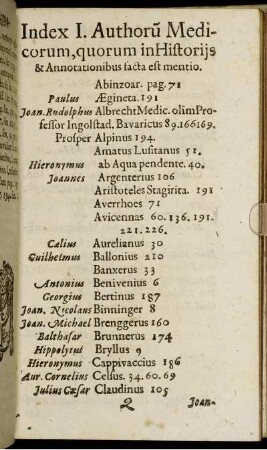 Index I. Authorũ Medi-
corum, quorum in Historijs
& Annotationibus facta est mentio.
Abinzoar. pag. 71
Paulus Ægineta. 191
Joan. Rudolphus Albrecht Medic. olim Pro-
fessor Ingolstad. Bavaricus 89. 166 169.
Prosper Alpinus 194.
Amatus Lusitanus 51.
Hieronymus ab Aqua pendente. 40.
Joannes Argenterius 106
Aristoteles Stagirita. 191
Averrhoes 71
Avicennas 60. 136. 191.
221. 226.
Cælius Aurelianus 30
Guilhelmus Ballonius 210
Banxerus 33
Antonius Benivenius 6
Georgius Bertinus 187
Joan. Nicolaus Binninger 8
Joan. Michael Brenggerus 160
Balthasar Brunnerus 174
Hippolytus Bryllus 9
Hieronymus Cappivaccius 186
Aur. Cornelius Celsus. 34. 60. 69
Julius Cæsar Claudinus 105
2 Joan-